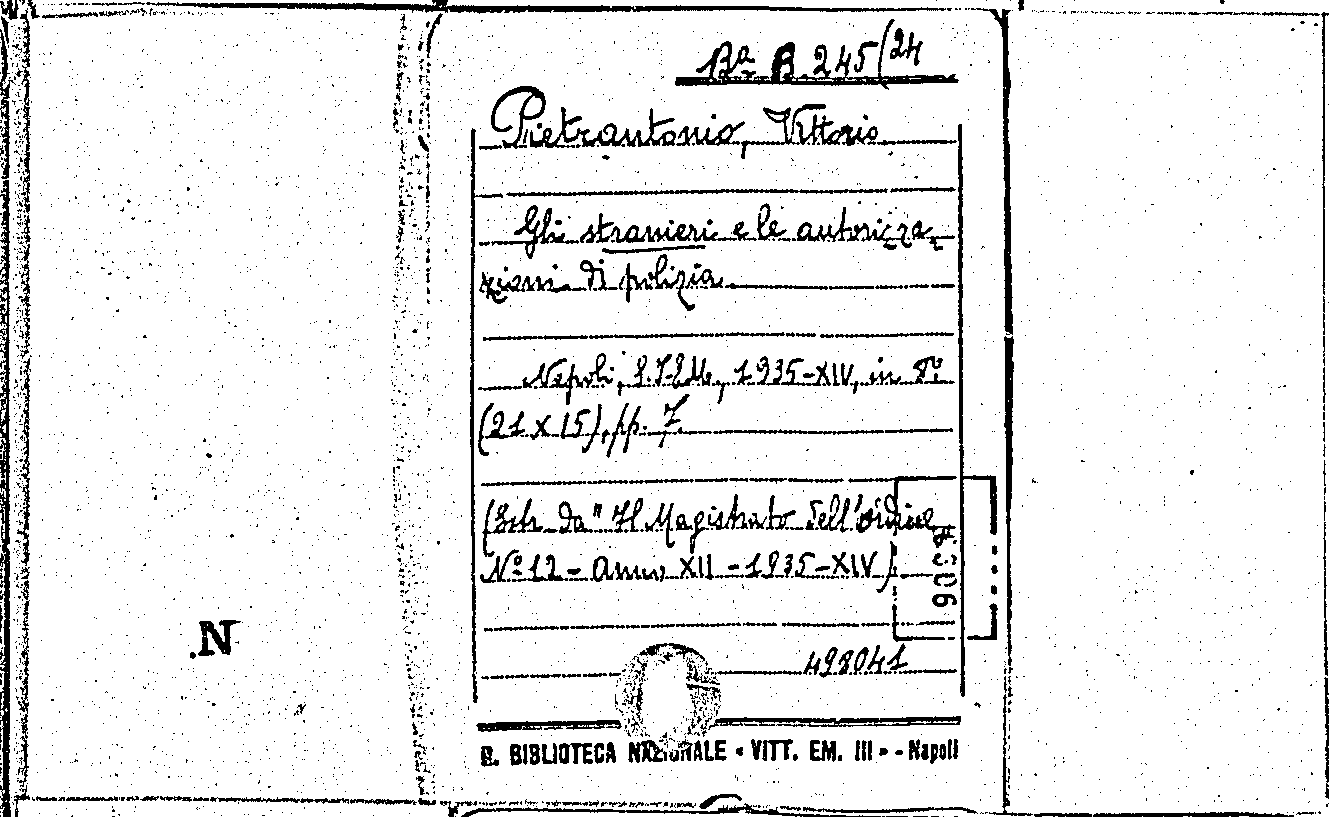 Bª B. 245 (24
Pietrantonio, Vittorio.
Gli stranieri e le autorizza-
zioni di polizia.
Napoli, S.I.E.M., 1935-XIV, in 8º.
(21 x 15), pp. 7.
(Estr. da "Il Magistrato dell'ordine
Nº 12 - Anno XII - 1935-XIV).
498041
N
R. BIBLIOTECA NAZIONALE « VITT. EM. III » - Napoli